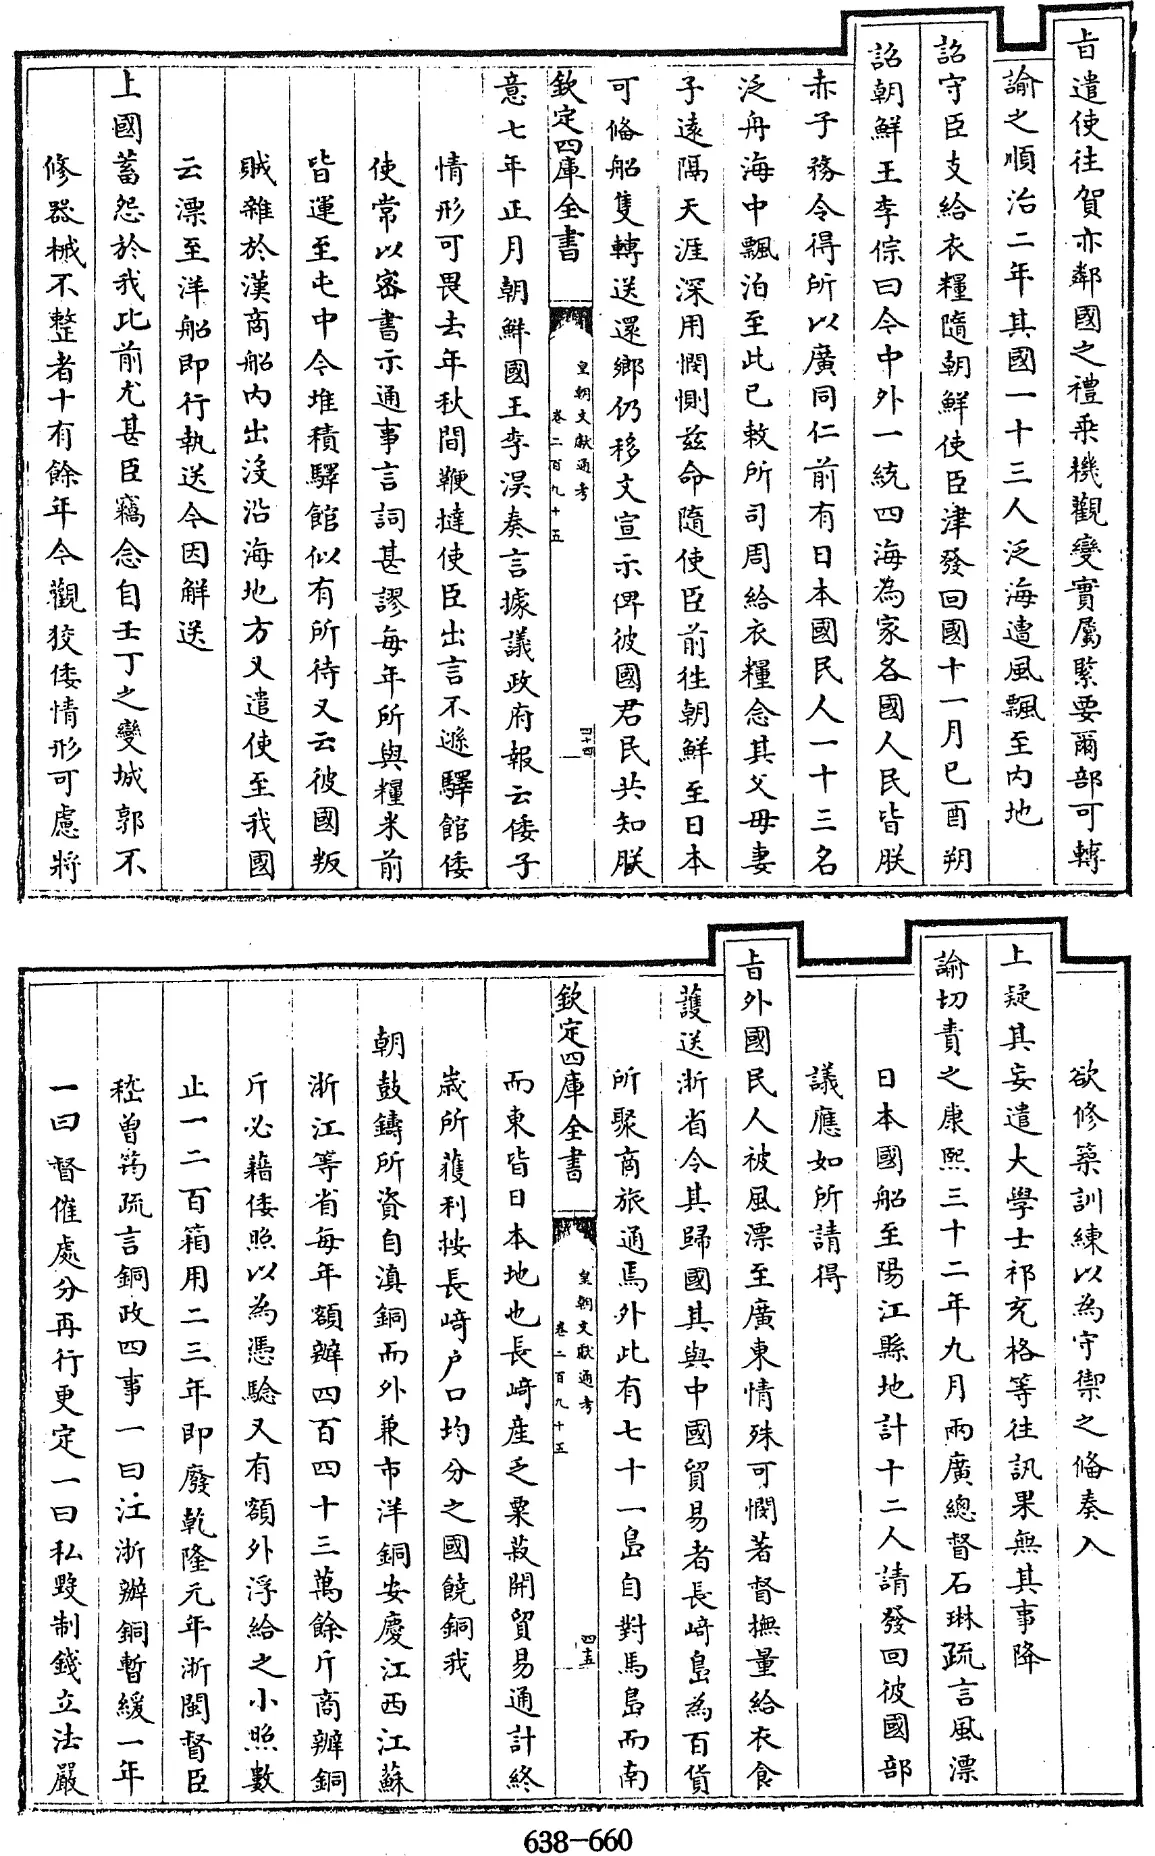 旨遣使往賀亦鄰國之禮乘機觀變實屬緊要爾部可轉
諭之順治二年其國一十三人泛海遭風飄至内地
詔守臣支給衣糧隨朝鮮使臣津發回國十一月己酉朔
詔朝鮮王李倧曰今中外一統四海為家各國人民皆朕
赤子務令得所以廣同仁前有日本國民人一十三名
泛舟海中飄泊至此已敕所司周給衣糧念其父母妻
子遠隔天涯深用憫惻兹命隨使臣前往朝鮮至日本
可備船隻轉送還鄉仍移文宣示俾彼國君民共知朕
欽定四庫全書
皇朝文獻通考
卷二百九十五
四十四
意七年正月朝鮮國王李淏奏言據議政府報云倭子
情形可畏去年秋間鞭撻使臣出言不遜驛館倭
使常以密書示通事言詞甚謬每年所與糧米前
皆運至屯中今堆積驛館似有所待又云彼國叛
賊雜於漢商船内出没沿海地方又遣使至我國
云漂至洋船即行執送今因解送
上國蓄怨於我比前尤甚臣竊念自壬丁之變城郭不
修器械不整者十有餘年今觀狡倭情形可慮將
欲修築訓練以為守禦之備奏入
上疑其妄遣大學士祁充格等往訊果無其事降
諭切責之康熙三十二年九月兩廣總督石琳疏言風漂
日本國船至陽江縣地計十二人請發回彼國部
議應如所請得
旨外國民人被風漂至廣東情殊可憫著督撫量給衣食
護送浙省令其歸國其與中國貿易者長崎島為百貨
所聚商旅通焉外此有七十一島自對馬島而南
欽定四庫全書
皇朝文獻通考
卷二百九十五
四十五
而東皆日本地也長崎產乏粟菽開貿易通計終
歲所獲利按長崎户口均分之國饒銅我
朝鼓鑄所資自滇銅而外兼市洋銅安慶江西江蘇
浙江等省每年額辦四百四十三萬餘斤商辦銅
斤必藉倭照以為憑驗又有額外浮給之小照數
止一二百箱用二三年即廢乾隆元年浙閩督臣
嵇曽筠疏言銅政四事一曰江浙辦銅暫緩一年
一曰督催處分再行更定一曰私毀制錢立法嚴
638-660